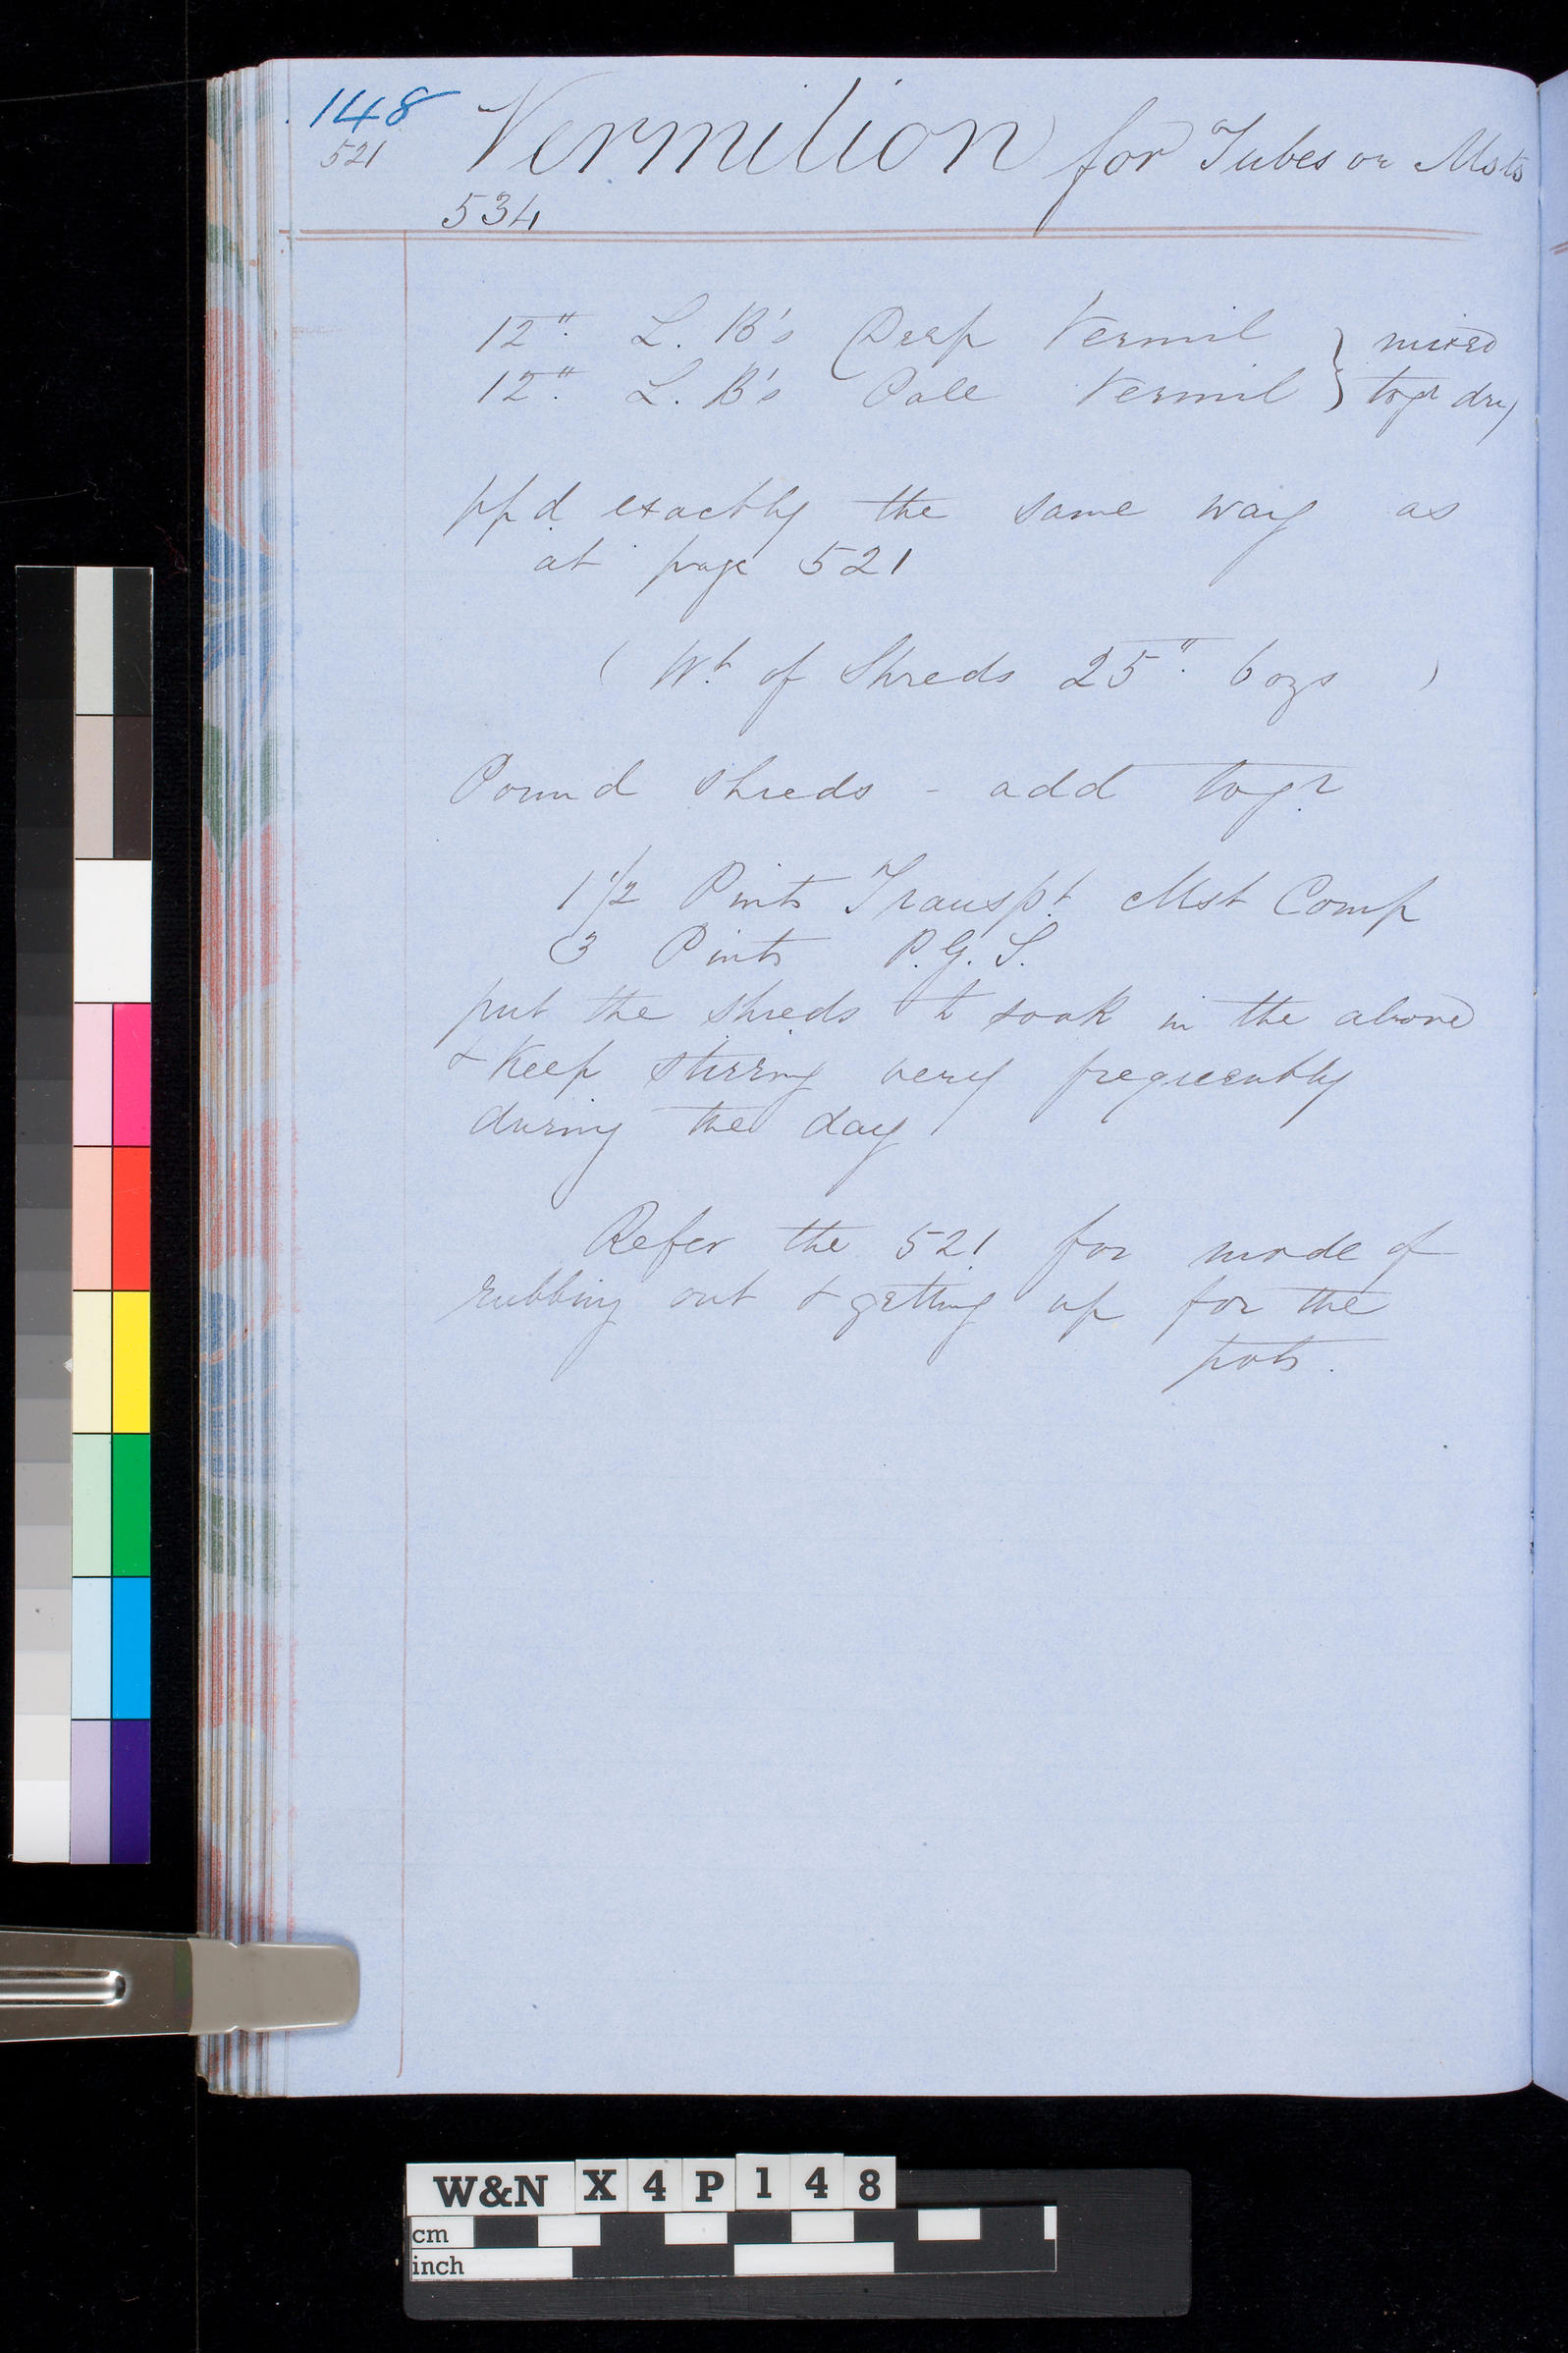 148
521
Vermilion for Tubes or Msts
534
12". L. B's Deep Vermil } mixed
12". L. B's Pale Vermil } togr dry
ppd exactly the same way as
at page 521
( Wt of Shreds 25". 6 ozs )
Pound shreds - add togr
1 1/2 Pints Transpt Mst Comp
3 Pints P. G. S.
put the shreds to soak in the above
& Keep stirring very frequently
during the day
Refer the 521 for mode of
rubbing out & getting up for the
pots.
W&N X4P148
cm
inch